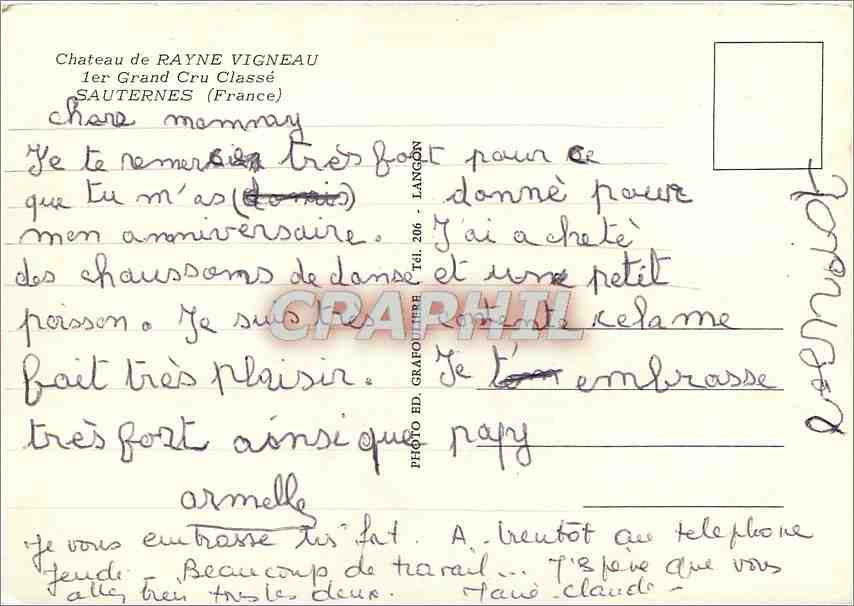 Chateau de RAYNE VIGNEAU
1er Grand Cru Classé
SAUTERNES (France)
chere mammy
Je te remercie très fort pour ce
que tu m'as donné pour
mon anniversaire. J'ai acheté
des chaussons de danse et un petit
poisson. Je suis très contente celame
fait très plaisir. Je t' embrasse
très fort ainsi que papy
armelle
Je vous embrasse très fort. A bientôt au telephone
Jeudi - Beaucoup de travail... J'espère que vous
allez bien tous les deux. Marie-Claude -
PHOTO ED. GRAFOULIERE - Tél. 206 - LANGON
CPAPHIL